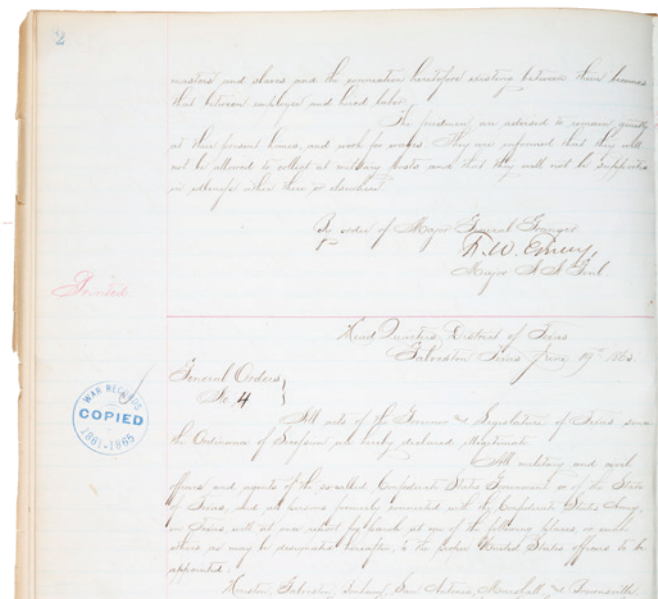 2
masters and slaves and the connection heretofore existing between them becomes
that between employer and hired labor.
The freedmen are advised to remain quietly
at their present homes, and work for wages. They are informed that they will
not be allowed to collect at military posts and that they will not be supported
in idleness either there or elsewhere"
By order of Major General Granger
F. W. Emery,
Major & A A Genl.
Printed.
Head Quarters District of Texas
Galveston Texas June 19th 1865.
General Orders
No. 4
WAR RECORDS
COPIED
1861-1865
All acts of the Governor & Legislature of Texas since
the Ordinance of Secession are hereby declared illegitimate.
All military and civil
officers and agents of the so-called Confederate States Government or of the State
of Texas, and all persons formerly connected with the Confederate States Army,
in Texas, will at once report for parole at one of the following places, or such
others as may be designated hereafter, to the proper United States officers to be
appointed:
Houston, Galveston, Bonham, San Antonio, Marshall, & Brownsville.